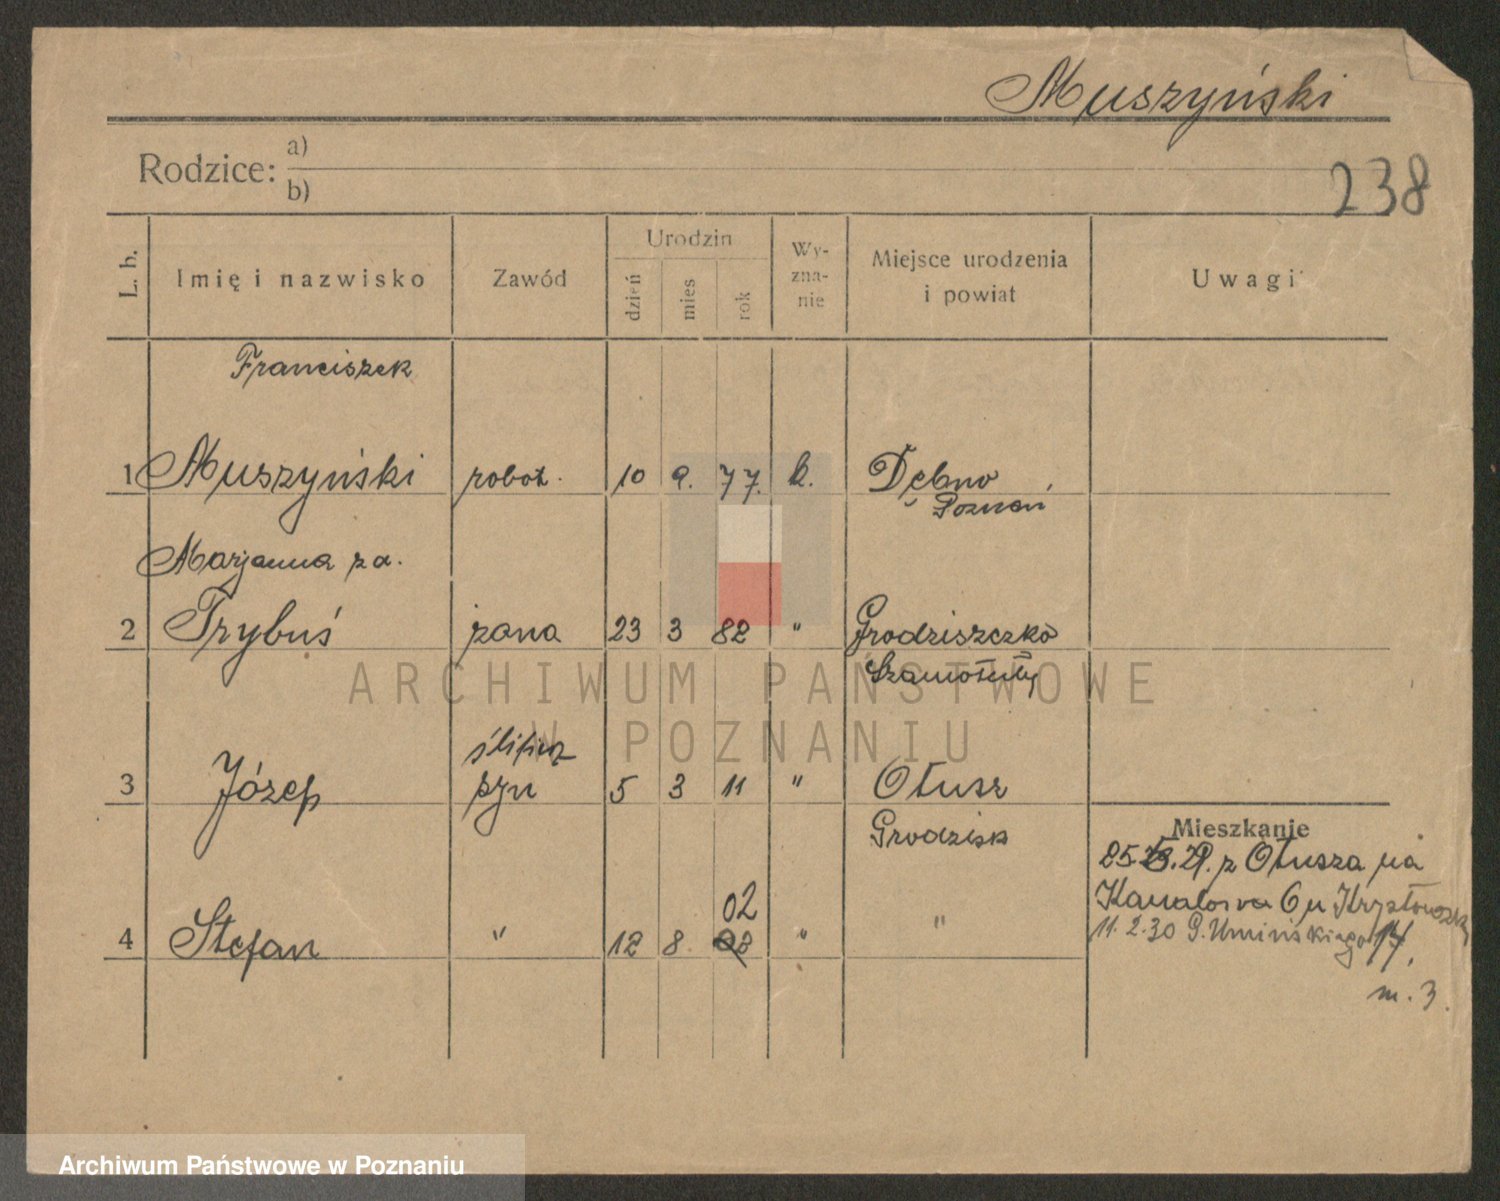 Muszyński
238
Rodzice: a)
b)
L. b.
Imię i nazwisko
Zawód
Urodzin
dzień
mies
rok
Wy-
zna-
nie
Miejsce urodzenia
i powiat
Uwagi
Franciszek
1 Muszyński robot. 10 9. 77. k. Dębno
Poznań
Marjanna za.
2 Trybuś żona 23 3 82 " Grodziszczko
Szamotuły
3 Józef syn 5 3 11 " Otusz
Grodzisk
02
4 Stefan " 12 8 " "
Mieszkanie
25. 29. z Otusza na
Kanałowa 6 u
11.2.30 P. Umińskiego 17,
m. 3.
ARCHIWUM PAŃSTWOWE
W POZNANIU
Archiwum Państwowe w Poznaniu